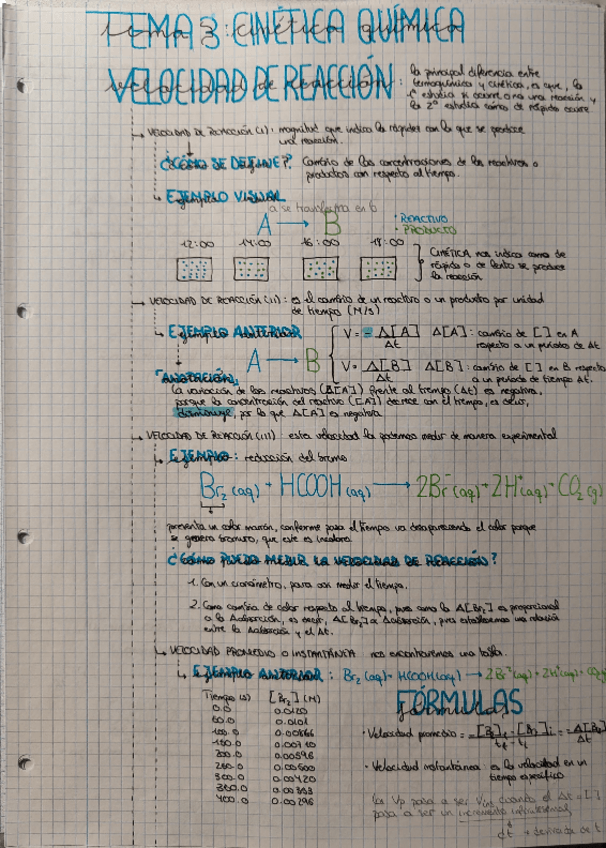 TEMA 3: CINÉTICA QUÍMICA
VELOCIDAD DE REACCIÓN: la principal diferencia entre
termoquímica y cinética, es que, la
1ª estudia si ocurre o no una reacción y
la 2ª estudia como de rápido ocurre
VELOCIDAD DE REACCIÓN (I): magnitud que indica la rapidez con la que se produce
una reacción.
¿CÓMO SE DEFINE?: Cambio de las concentraciones de los reactivos o
productos con respecto al tiempo.
EJEMPLO VISUAL
a se transforma en b
A → B
· REACTIVO
· PRODUCTO
12:00 14:00 16:00 18:00
CINÉTICA nos indica como de
rápido o de lento se produce
la reacción
VELOCIDAD DE REACCIÓN (II): es el cambio de un reactivo o un producto por unidad
de tiempo (M/s)
EJEMPLO ANTERIOR
A → B
V = - Δ[A] / Δt Δ[A]: cambio de [] en A
respecto a un período de Δt
V = Δ[B] / Δt Δ[B]: cambio de [] en B respecto
a un período de tiempo Δt.
"ANOTACIÓN"
La variación de los reactivos (Δ[A]) frente al tiempo (Δt) es negativa,
porque la concentración del reactivo ([A]) decrece con el tiempo, es decir,
disminuye, por lo que Δ[A] es negativa.
VELOCIDAD DE REACCIÓN (III): esta velocidad la podemos medir de manera experimental
EJEMPLO: reducción del bromo
Br₂ (aq) + HCOOH (aq) → 2Br⁻ (aq) + 2H⁺ (aq) + CO₂ (g)
presenta un color marrón, conforme pasa el tiempo va desapareciendo el color porque
se genera bromuro, que este es incoloro.
¿CÓMO PUEDO MEDIR LA VELOCIDAD DE REACCIÓN?
1. Con un cronómetro, para así medir el tiempo.
2. Como cambia de color respecto al tiempo, pues como la Δ[Br₂] es proporcional
a la Δabsorción, es decir, Δ[Br₂] α Δabsorción, pues establecemos una relación
entre la Δabsorción y el Δt.
VELOCIDAD PROMEDIO O INSTANTÁNEA: nos encontraremos una tabla.
EJEMPLO ANTERIOR: Br₂ (aq) + HCOOH (aq) → 2Br⁻ (aq) + 2H⁺ (aq) + CO₂ (g)
Tiempo (s) [Br₂] (M)
0.0 0.0120
50.0 0.0101
100.0 0.00846
150.0 0.00710
200.0 0.00596
250.0 0.00500
300.0 0.00420
350.0 0.00353
400.0 0.00296
FÓRMULAS
· Velocidad promedio = - [Br₂]f - [Br₂]i / tf - ti = - Δ[Br₂] / Δt
· Velocidad instantánea: es la velocidad en un
tiempo específico
La Vp pasa a ser Vins cuando el Δt = []
pasa a ser un incremento infinitesimal
dt → derivada de t.